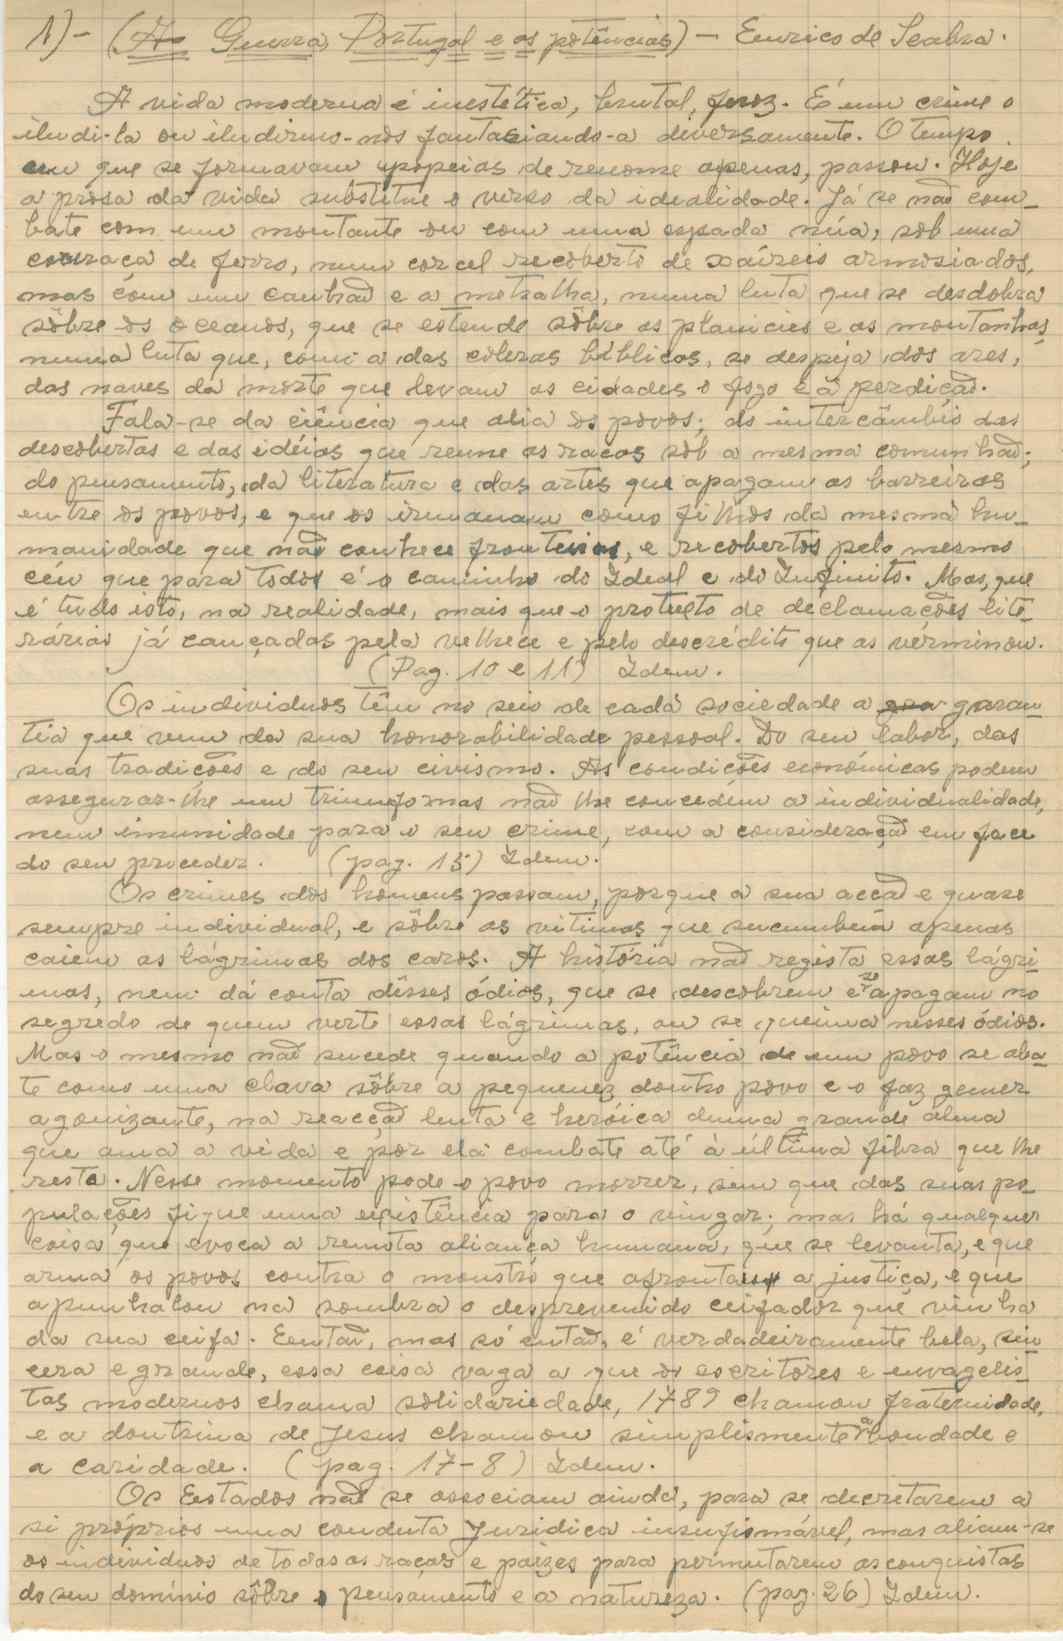 1)- (A Guerra, Portugal e as potências) - Eurico de Seabra.
A vida moderna é inestética, brutal, feroz. É um crime o
iludi-la ou iludirmo-nos fantasiando-a diversamente. O tempo
em que se formavam epopeias de renome apenas, passou. Hoje
a prosa da vida substitue o verso da idealidade. Já se não com-
bate com um montante ou com uma espada núa, sob uma
couraça de ferro, num corcel recoberto de xáireis armoriados,
mas com um canhão e a metralha, numa luta que se desdobra
sôbre os oceanos, que se estende sôbre as planicies e as montanhas,
numa luta que, como a das coleras bíblicas, se despeja dos ares,
das naves da morte que levam as cidades o fogo e a perdição.
Fala-se da ciência que alia os povos; do intercâmbio das
descobertas e das idéias que reune as raças sob a mesma comunhão;
do pensamento, da literatura e das artes que apagam as barreiras
entre os povos, e que os irmanam como filhos da mesma hu-
manidade que não conhece fronteiras, e recobertos pelo mesmo
céu que para todos é o caminho do Ideal e do Infinito. Mas, que
é tudo isto, na realidade, mais que o pretexto de declamações lite-
rárias já cançadas pela velhece e pelo descrédito que as verminou.
(Pag. 10 e 11) Idem.
Os individuos têm no seio de cada sociedade a garan-
tia que vem da sua honorabilidade pessoal. Do seu labor, das
suas tradicões e do seu civismo. As condicões económicas podem
assegurar-lhe um triunfo mas não lhe concedem a individualidade,
nem imunidade para o seu crime, com a consideração em face
do seu proceder. (pag. 15) Idem.
Os crimes dos homens passam, porque a sua accão e quase
sempre individual, e sôbre as vitimas que sucumbem apenas
caiem as lágrimas dos caros. A história não regista essas lágri-
mas, nem dá conta dêsses ódios, que se descobrem e se apagam no
segredo de quem verte essas lágrimas, ou se queima nesses ódios.
Mas o mesmo não sucede quando a potência de um povo se aba-
te como uma clava sôbre a pequenez doutro povo e o faz gemer
agonizante, na reacção lenta e heróica duma grande alma
que ama a vida e por ela combate até à última fibra que lhe
resta. Nesse momento pode o povo morrer, sem que das suas po-
pulacões fique uma existência para o vingar; mas há qualquer
coisa que evoca a remota aliança humana, que se levanta, e que
arma os povos contra o monstro que afrontou a justiça, e que
apunhalou na sombra o desprevenido ceifador que vinha
da sua ceifa. Eentão, mas só então, é verdadeiramente bela, sin-
cera e grande, essa coisa vaga a que os escritores e envagelis-
tas modernos chama solidariedade, 1789 chamou fraternidade,
e a doutrina de Jesus chamou simplismente a bondade e
a caridade. (pag. 17-8) Idem.
Os Estados não se associam ainda, para se decretarem a
si próprios uma conduta Juridica insufismável, mas aliam-se
os individuos de todas as raças e paizes para permutarem as conquistas
do seu domínio sôbre o pensamento e a natureza. (pag. 26) Idem.